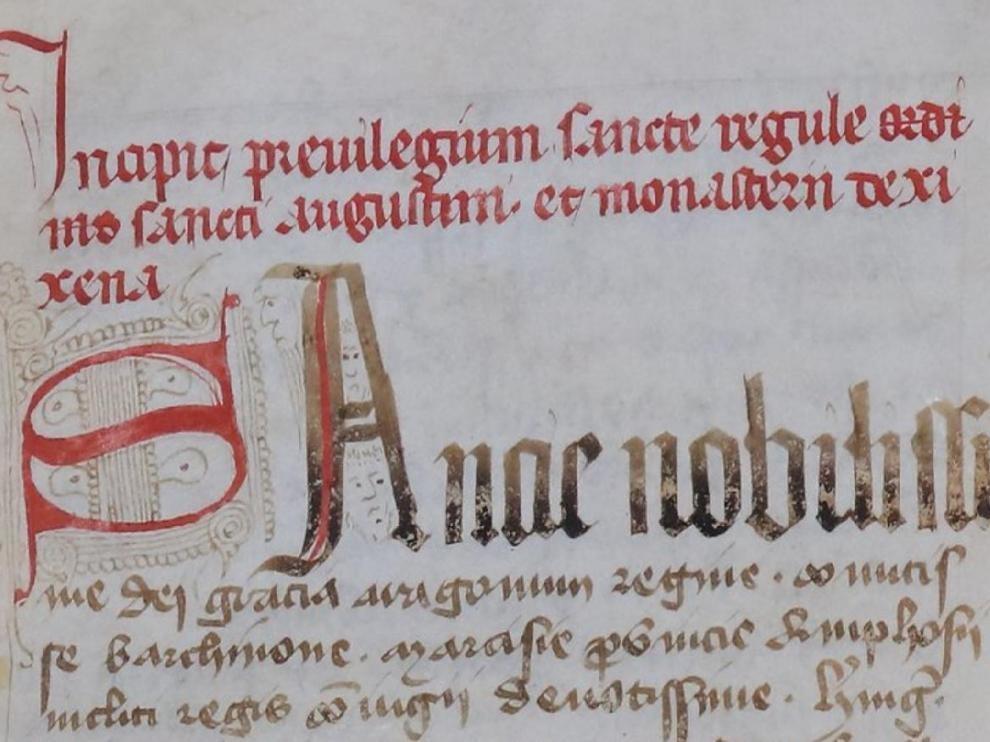 Incipit previlegium sancte regule ordi
nis sancti augustini et monasterii de xi
xena
SAnac nobilissi
me dej gracia aragonum regine · comitis
se barchinone · marcisie provincie Amphosii
incliti regis coniugij devotissime ·